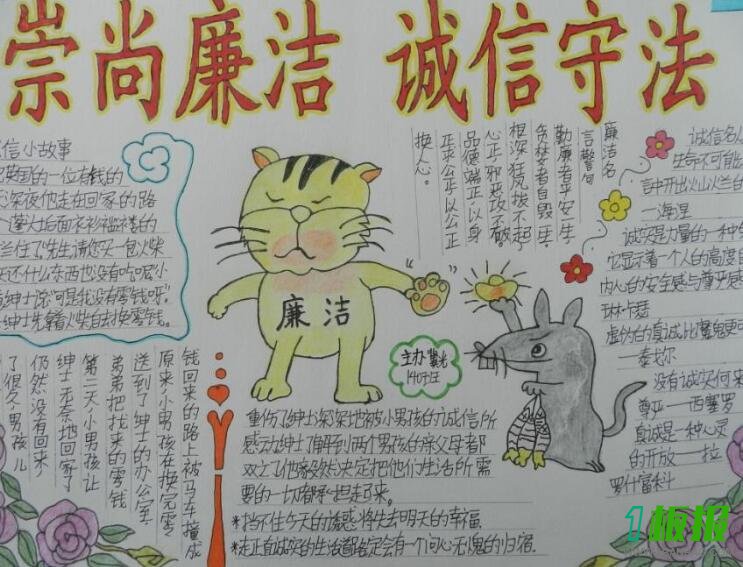 崇尚廉洁 诚信守法
信小故事
英国的一位有钱的
深夜他走在回家的路
蓬头后面衣衫褴褛的
兰住了。"先生请您买一包火柴
天还什么东西也没有吃呢"小
绅士说"可是我没有零钱呀。"
绅士先籍火柴自去换零钱。
了很久,男孩儿
仍然没有回来,
绅士无奈地回家了
第二天,小男孩让
弟弟把找来的零钱
送到了绅士的办公室。
原来,小男孩在换完零
钱回来的路上被马车撞成
重伤了绅士深深地被小男孩的诚信所
感动绅士了解到两个男孩的亲父母都
双亡了他毅然决定把他们生活所需
要的一切都承担起来了。
*挡不住今天的诱惑,将失去明天的幸福.
*走正直诚实的生活道路定会有一个问心无愧的归宿.
廉洁
主办
1407班
廉洁名
言警句
勤廉者平安一生,
贪婪者自毁一生
根深狂风拔不起,
心正邪来攻不破。
品德端正以身
正求公正以公正
换人心。
诚信名人
生命不可能
言中开出灿烂的
—海涅
诚实是力量的一种
它显示着一个人的高度自
内心的安全感与尊严感
琳·卡瑟
虚伪的真诚比魔鬼更可
—泰戈尔
没有诚实何来
尊严—西塞罗
真诚是一种心灵
的开放—拉
罗什富科
1板报